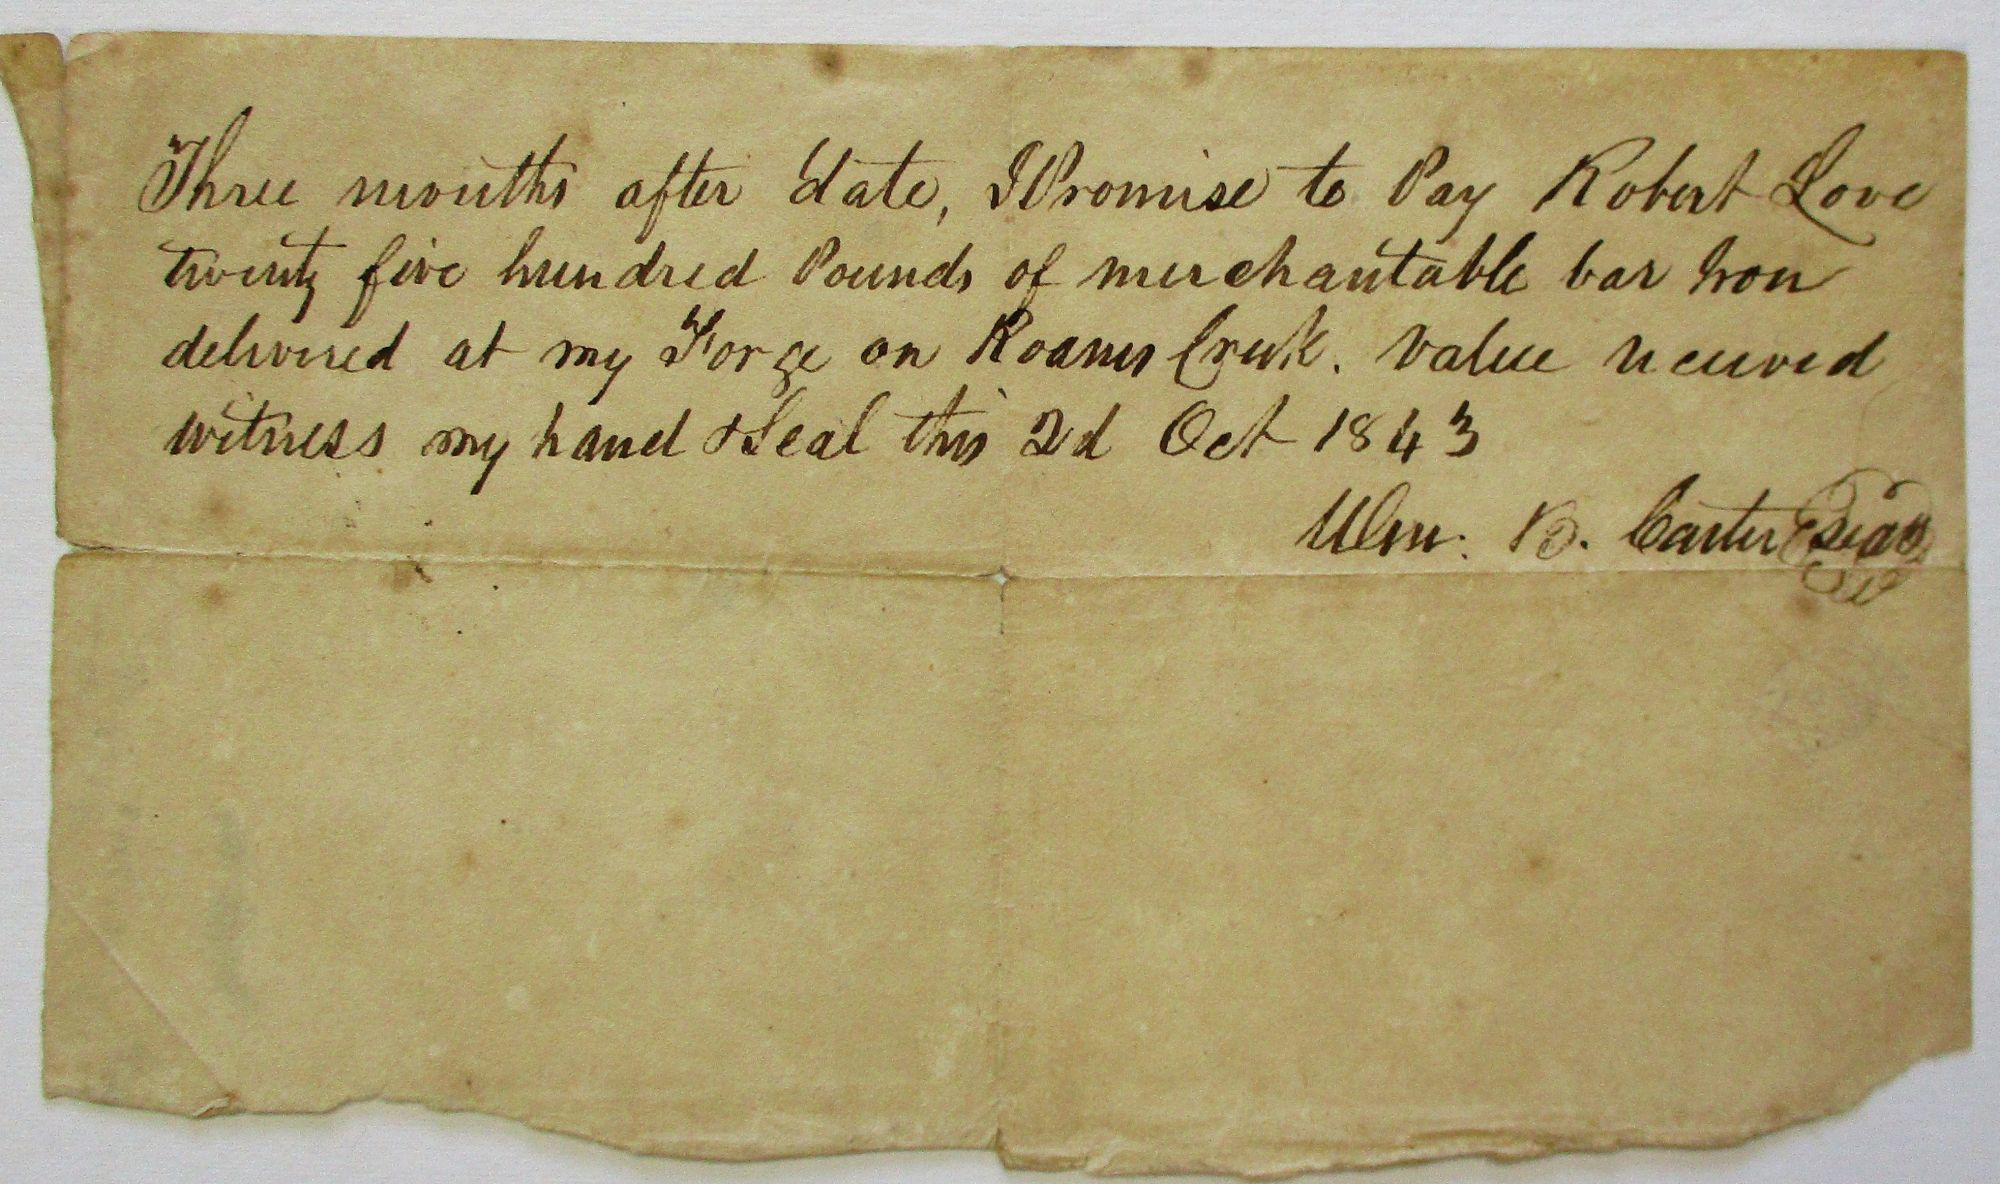 Three months after date, I Promise to Pay Robert Love
twenty five hundred Pounds of merchantable bar Iron
delivered at my Forge on Roanes Creek. Value received
witness my hand & Seal this 2d Oct 1843
Wm. B. Carter Seal